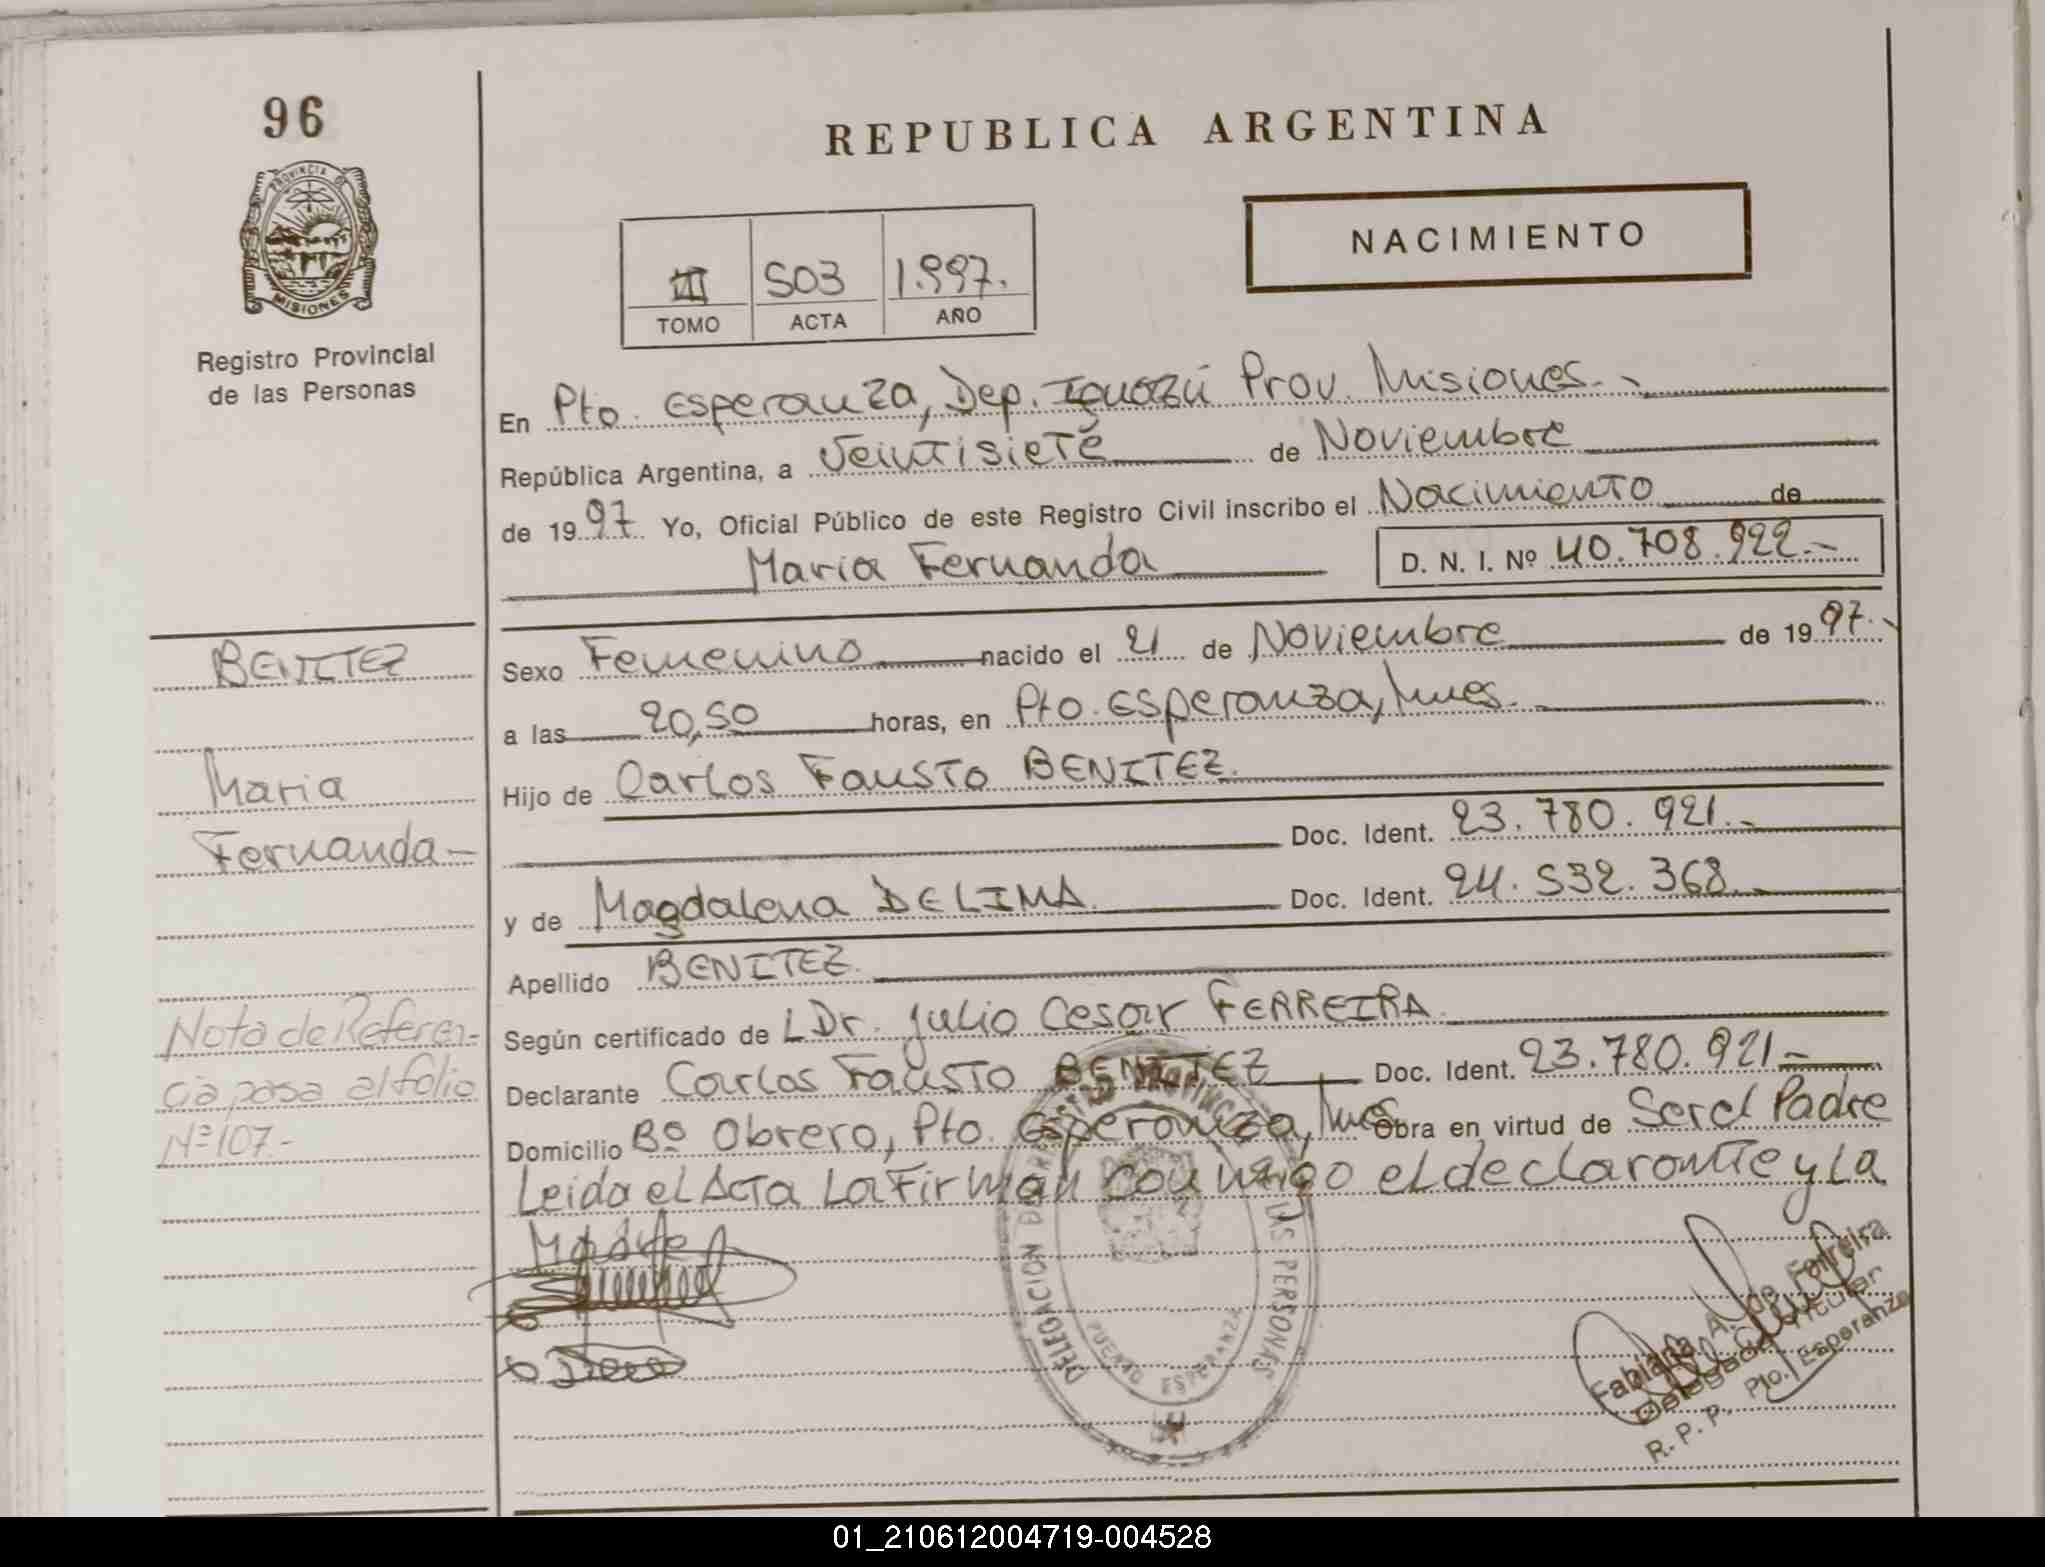 96
PROVINCIA DE
MISIONES
Registro Provincial
de las Personas
REPUBLICA ARGENTINA
NACIMIENTO
III 503 1.997.
TOMO ACTA AÑO
En Pto. Esperanza, Dep. Iguazú Prov. Misiones.-
República Argentina, a Veintisiete de Noviembre
de 1997 Yo, Oficial Público de este Registro Civil inscribo el Nacimiento de
Maria Fernanda D. N. I. Nº 40.708.922.-
Sexo Femenino nacido el 21 de Noviembre de 1997.-
a las 20,50 horas, en Pto. Esperanza, Mnes.
Hijo de Carlos Fausto BENITEZ.
Doc. Ident. 23.780.921.-
y de Magdalena DE LIMA. Doc. Ident. 24.532.368.-
Apellido BENITEZ.
Según certificado de L Dr. Julio Cesar FERREIRA.
Declarante Carlos Fausto BENITEZ Doc. Ident. 23.780.921.-
Domicilio Bº Obrero, Pto. Esperanza, Mnes Obra en virtud de Ser el Padre
Leida el Acta La Firman conmigo el declarante y La
Madre
BENITEZ
Maria
Fernanda-
Nota de Referen-
cia pasa al folio
Nº 107.-
DELEGACION LAS PERSONAS
PUERTO ESPERANZA
Fabiana A. de Ferreira
Delegada Titular
R. P. P. Pto. Esperanza
01_210612004719-004528